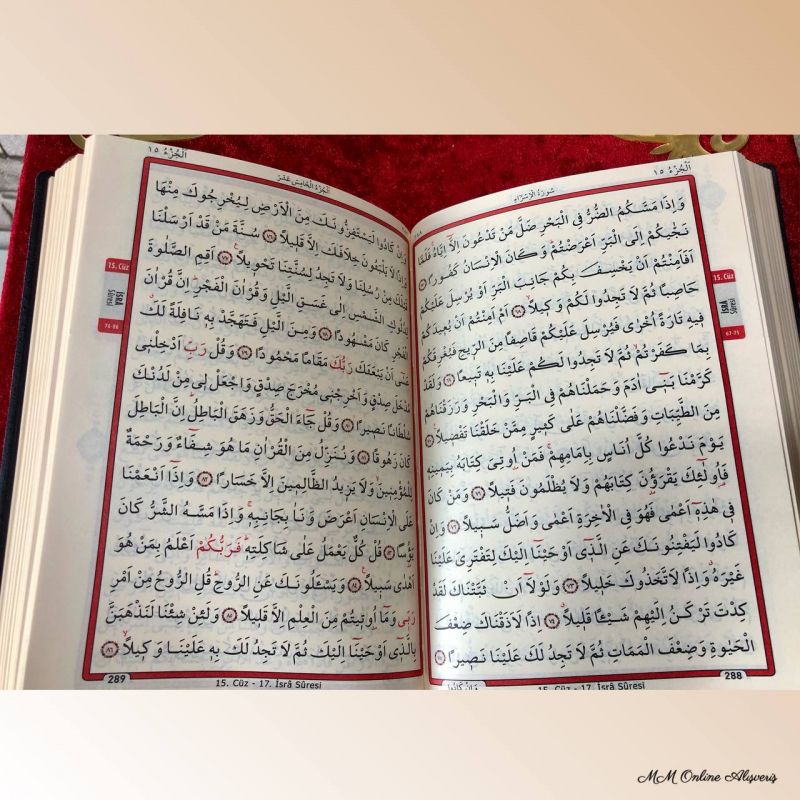 اَلْجُزْءُ ١٥
سُورَةُ الْاِسْرَاءِ
وَاِذَا مَسَّكُمُ الضُّرُّ فِي الْبَحْرِ ضَلَّ مَنْ تَدْعُونَ اِلَّٓا اِيَّاهُۚ فَلَمَّا
نَجّٰيكُمْ اِلَى الْبَرِّ اَعْرَضْتُمْۜ وَكَانَ الْاِنْسَانُ كَفُورًا ﴿٦٧﴾
اَفَاَمِنْتُمْ اَنْ يَخْسِفَ بِكُمْ جَانِبَ الْبَرِّ اَوْ يُرْسِلَ عَلَيْكُمْ
حَاصِبًا ثُمَّ لَا تَجِدُوا لَكُمْ وَكِيلًاۙ ﴿٦٨﴾ اَمْ اَمِنْتُمْ اَنْ يُعِيدَكُمْ
فِيهِ تَارَةً اُخْرٰى فَيُرْسِلَ عَلَيْكُمْ قَاصِفًا مِنَ الرِّيحِ فَيُغْرِقَكُمْ
بِمَا كَفَرْتُمْۙ ثُمَّ لَا تَجِدُوا لَكُمْ عَلَيْنَا بِهِ تَبِيعًا ﴿٦٩﴾ وَلَقَدْ
كَرَّمْنَا بَنِٓي اٰدَمَ وَحَمَلْنَاهُمْ فِي الْبَرِّ وَالْبَحْرِ وَرَزَقْنَاهُمْ
مِنَ الطَّيِّبَاتِ وَفَضَّلْنَاهُمْ عَلٰى كَثِيرٍ مِمَّنْ خَلَقْنَا تَفْضِيلًا۟ ﴿٧٠﴾
يَوْمَ نَدْعُوا كُلَّ اُنَاسٍ بِاِمَامِهِمْۚ فَمَنْ اُو۫تِيَ كِتَابَهُ بِيَمِينِهِ
فَاُو۬لٰٓئِكَ يَقْرَؤُ۫نَ كِتَابَهُمْ وَلَا يُظْلَمُونَ فَتِيلًا ﴿٧١﴾ وَمَنْ كَانَ
فِي هٰذِهِٓ اَعْمٰى فَهُوَ فِي الْاٰخِرَةِ اَعْمٰى وَاَضَلُّ سَبِيلًا ﴿٧٢﴾ وَاِنْ
كَادُوا لَيَفْتِنُونَكَ عَنِ الَّذِٓي اَوْحَيْنَٓا اِلَيْكَ لِتَفْتَرِيَ عَلَيْنَا
غَيْرَهُۗ وَاِذًا لَاتَّخَذُوكَ خَلِيلًا ﴿٧٣﴾ وَلَوْلَٓا اَنْ ثَبَّتْنَاكَ لَقَدْ
كِدْتَ تَرْكَنُ اِلَيْهِمْ شَيْـًٔا قَلِيلًاۗ ﴿٧٤﴾ اِذًا لَاَذَقْنَاكَ ضِعْفَ
الْحَيٰوةِ وَضِعْفَ الْمَمَاتِ ثُمَّ لَا تَجِدُ لَكَ عَلَيْنَا نَصِيرًا ﴿٧٥﴾
15. Cüz
İSRÂ
Sûresi
67-75
288
15. Cüz - 17. İsrâ Sûresi
وَاِنْ كَادُوا
اَلْجُزْءُ ١٥
اَلْجُزْءُ الْخَامِسَ عَشَرَ
وَاِنْ كَادُوا لَيَسْتَفِزُّونَكَ مِنَ الْاَرْضِ لِيُخْرِجُوكَ مِنْهَا
وَاِذًا لَا يَلْبَثُونَ خِلَافَكَ اِلَّا قَلِيلًا ﴿٧٦﴾ سُنَّةَ مَنْ قَدْ اَرْسَلْنَا
قَبْلَكَ مِنْ رُسُلِنَا وَلَا تَجِدُ لِسُنَّتِنَا تَحْوِيلًا۟ ﴿٧٧﴾ اَقِمِ الصَّلٰوةَ
لِدُلُوكِ الشَّمْسِ اِلٰى غَسَقِ الَّيْلِ وَقُرْاٰنَ الْفَجْرِۜ اِنَّ قُرْاٰنَ
الْفَجْرِ كَانَ مَشْهُودًا ﴿٧٨﴾ وَمِنَ الَّيْلِ فَتَهَجَّدْ بِهِ نَافِلَةً لَكَۗ
عَسٰٓى اَنْ يَبْعَثَكَ رَبُّكَ مَقَامًا مَحْمُودًا ﴿٧٩﴾ وَقُلْ رَبِّ اَدْخِلْنِي
مُدْخَلَ صِدْقٍ وَاَخْرِجْنِي مُخْرَجَ صِدْقٍ وَاجْعَلْ لِي مِنْ لَدُنْكَ
سُلْطَانًا نَصِيرًا ﴿٨٠﴾ وَقُلْ جَٓاءَ الْحَقُّ وَزَهَقَ الْبَاطِلُۜ اِنَّ الْبَاطِلَ
كَانَ زَهُوقًا ﴿٨١﴾ وَنُنَزِّلُ مِنَ الْقُرْاٰنِ مَا هُوَ شِفَٓاءٌ وَرَحْمَةٌ
لِلْمُؤْمِنِينَۙ وَلَا يَزِيدُ الظَّالِمِينَ اِلَّا خَسَارًا ﴿٨٢﴾ وَاِذَٓا اَنْعَمْنَا
عَلَى الْاِنْسَانِ اَعْرَضَ وَنَاٰ بِجَانِبِهِۚ وَاِذَا مَسَّهُ الشَّرُّ كَانَ
يَؤُ۫سًا ﴿٨٣﴾ قُلْ كُلٌّ يَعْمَلُ عَلٰى شَاكِلَتِهِۜ فَرَبُّكُمْ اَعْلَمُ بِمَنْ هُوَ
اَهْدٰى سَبِيلًا۟ ﴿٨٤﴾ وَيَسْـَٔلُونَكَ عَنِ الرُّوحِۜ قُلِ الرُّوحُ مِنْ اَمْرِ
رَبِّي وَمَٓا اُو۫تِيتُمْ مِنَ الْعِلْمِ اِلَّا قَلِيلًا ﴿٨٥﴾ وَلَئِنْ شِئْنَا لَنَذْهَبَنَّ
بِالَّذِٓي اَوْحَيْنَٓا اِلَيْكَ ثُمَّ لَا تَجِدُ لَكَ بِهِ عَلَيْنَا وَكِيلًاۙ ﴿٨٦﴾
15. Cüz
İSRÂ
Sûresi
76-86
289
15. Cüz - 17. İsrâ Sûresi
MM Online Alışveriş